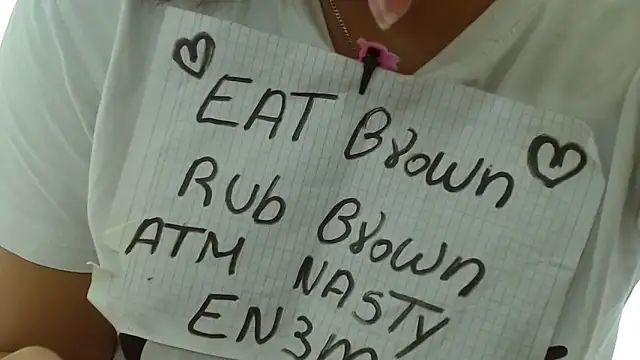 EAT Brown
RUb Brown
ATM NASTY
EN3m